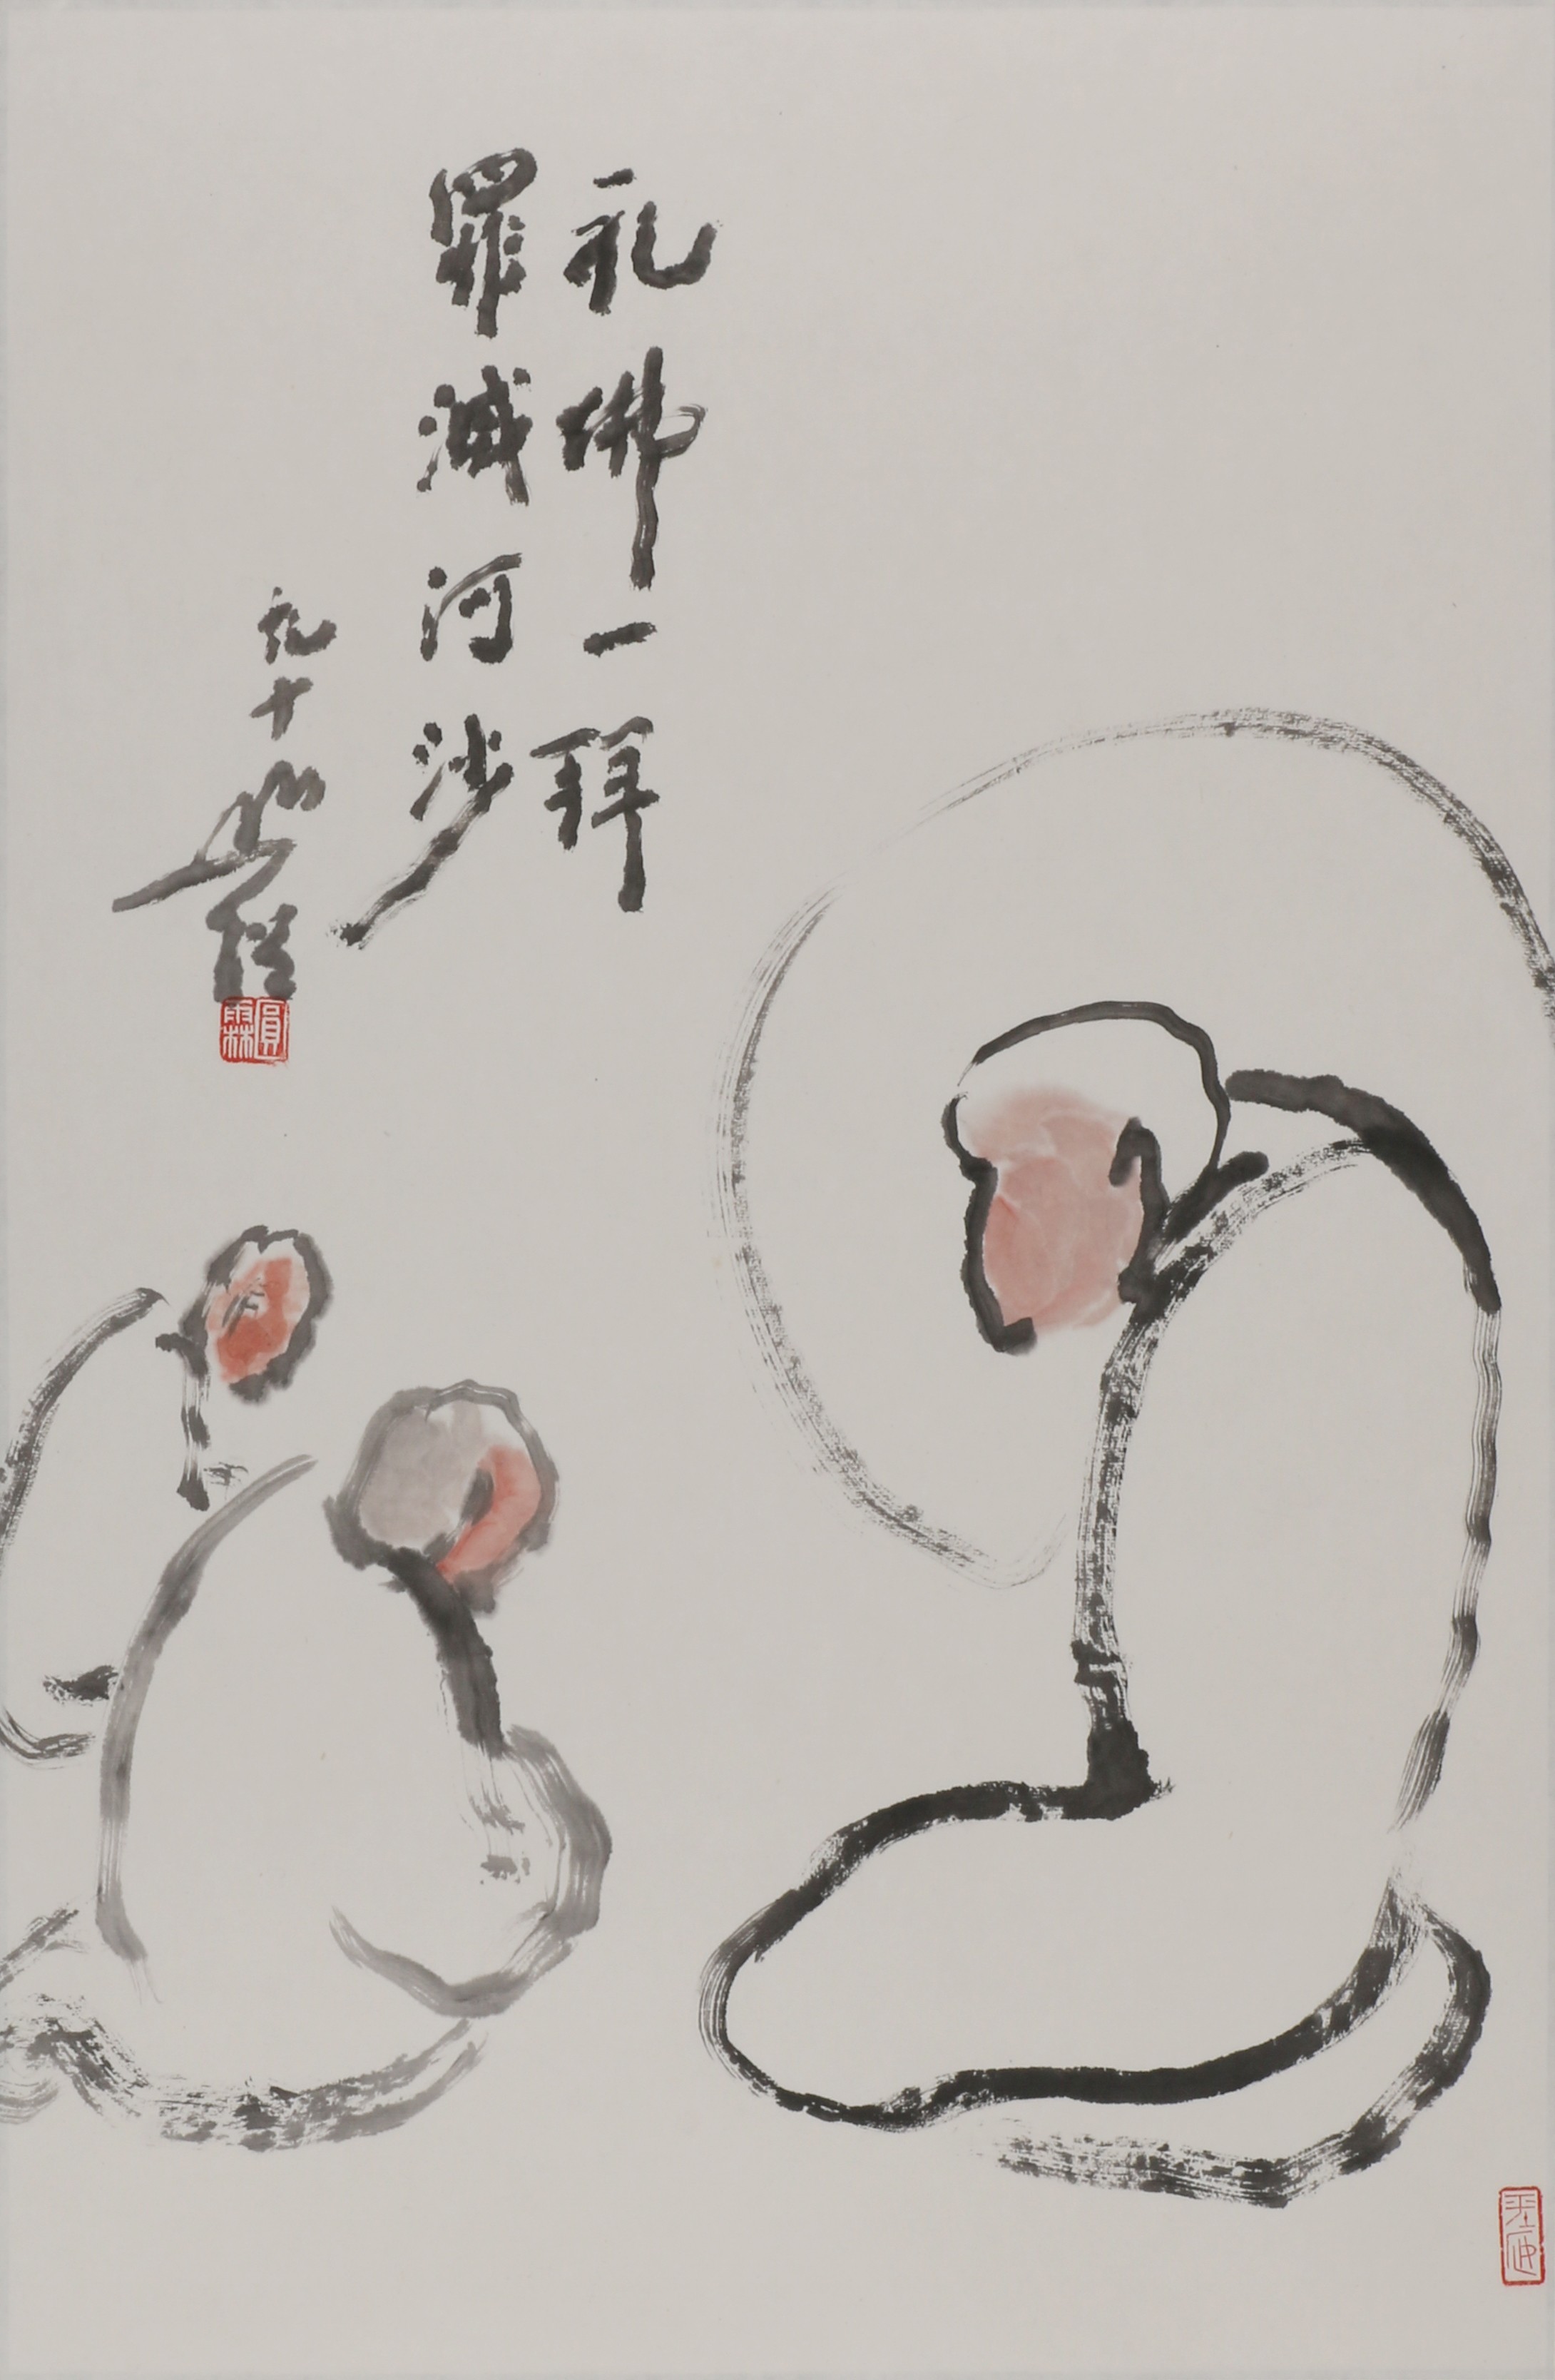 礼佛一拜
罪滅河沙
九十山僧
圓霖